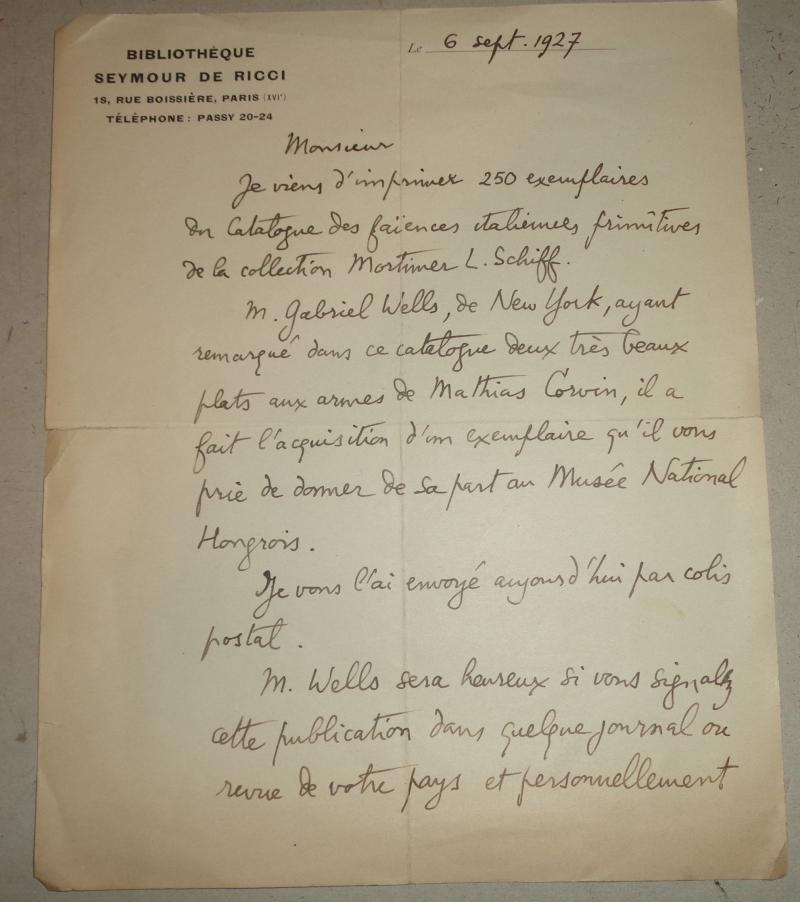 BIBLIOTHÈQUE
SEYMOUR DE RICCI
18, RUE BOISSIÈRE, PARIS (XVIe)
TÉLÉPHONE : PASSY 20-24
Le 6 sept. 1927
Monsieur
Je viens d'imprimer 250 exemplaires
du Catalogue des faïences italiennes primitives
de la collection Mortimer L. Schiff.
M. Gabriel Wells, de New York, ayant
remarqué dans ce catalogue deux très beaux
plats aux armes de Mathias Corvin, il a
fait l'acquisition d'un exemplaire qu'il vous
prie de donner de sa part au Musée National
Hongrois.
Je vous l'ai envoyé aujourd'hui par colis
postal.
M. Wells sera heureux si vous signalez
cette publication dans quelque journal ou
revue de votre pays et personnellement